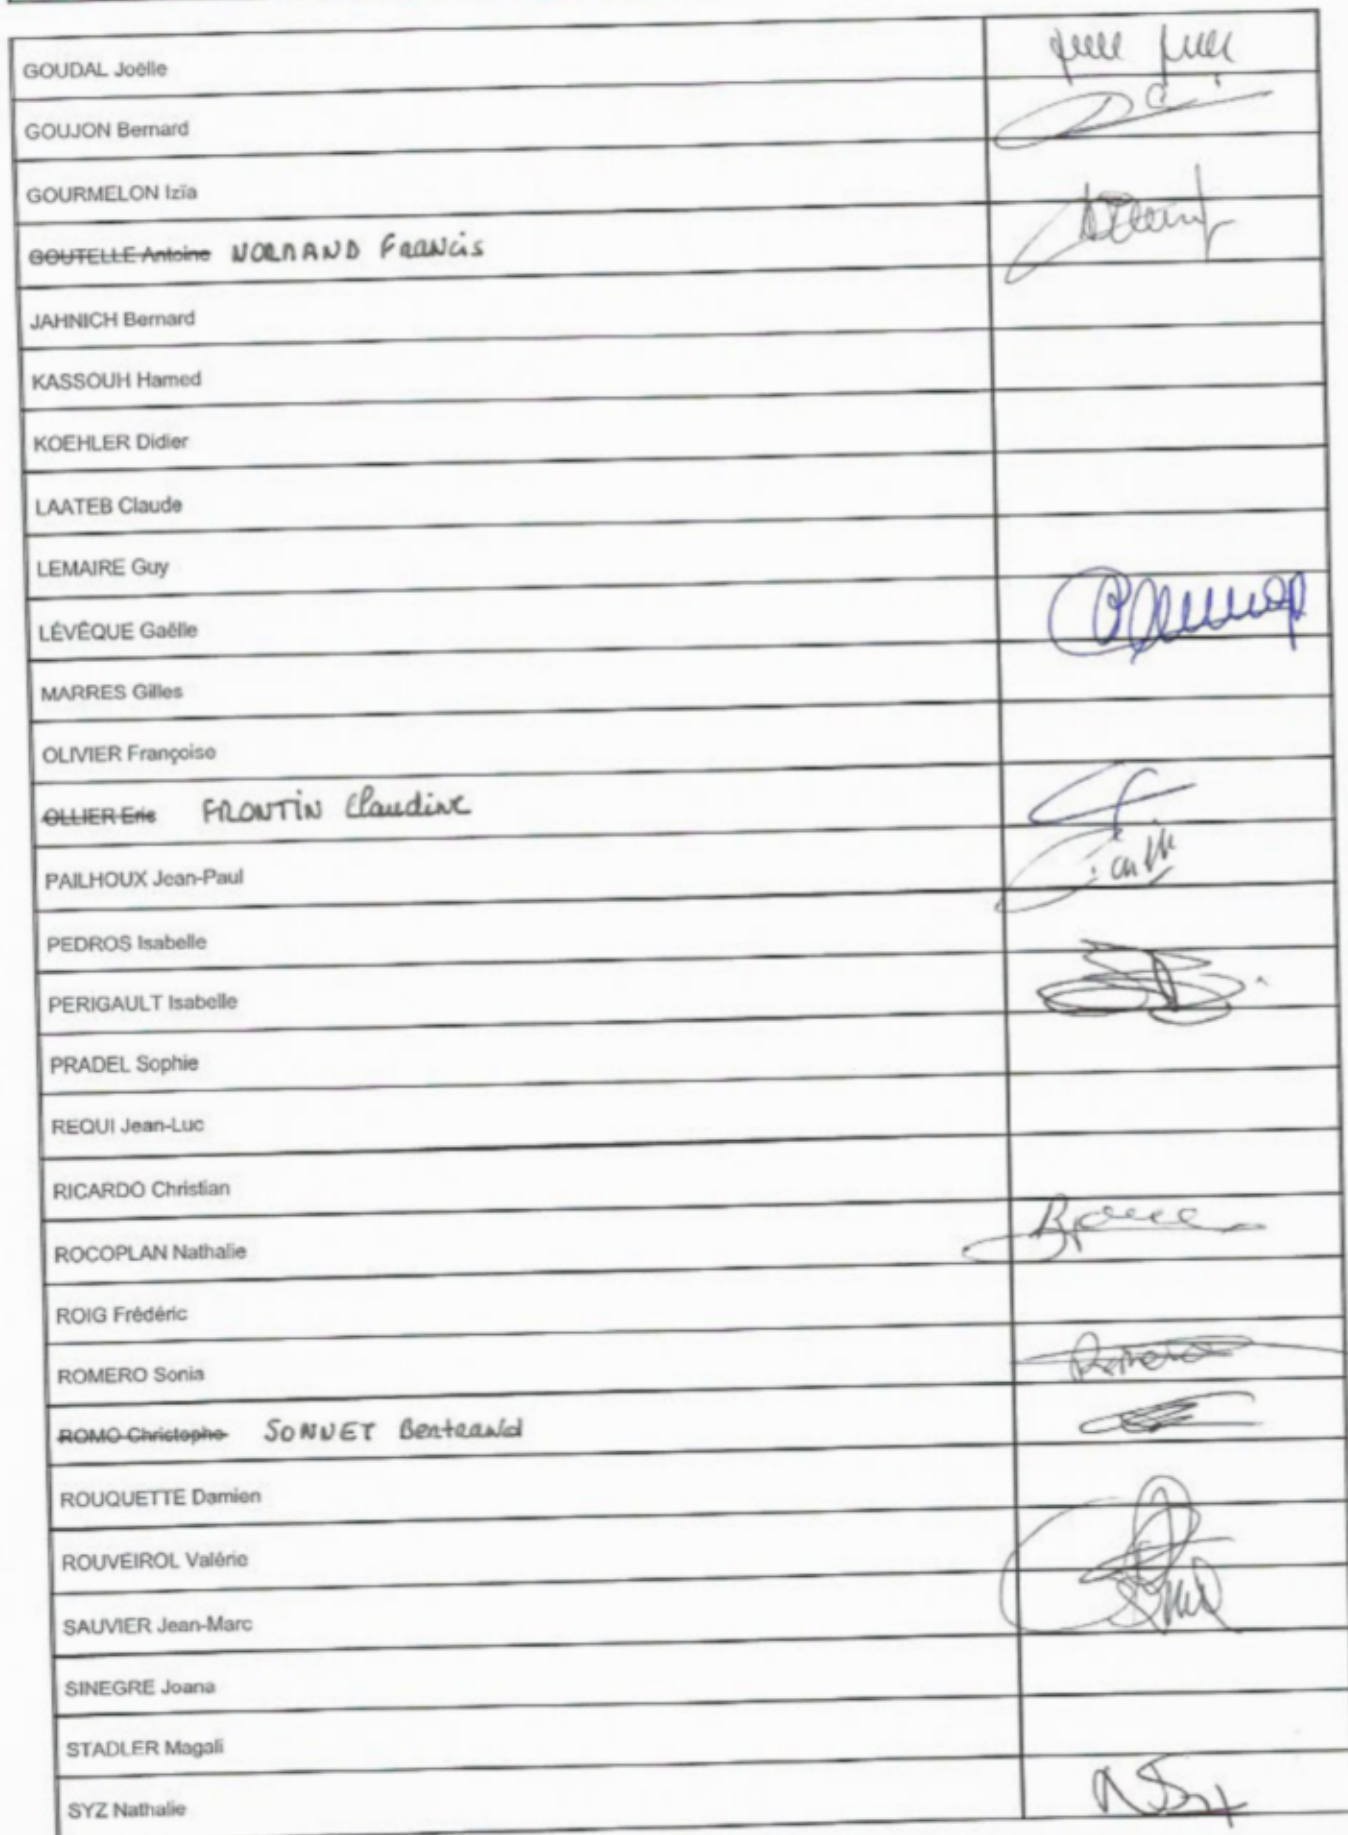 GOUDAL Joëlle
GOUJON Bernard
GOURMELON Izïa
GOUTELLE Antoine NORMAND Francis
JAHNICH Bernard
KASSOUH Hamed
KOEHLER Didier
LAATEB Claude
LEMAIRE Guy
LÉVÊQUE Gaëlle
MARRES Gilles
OLIVIER Françoise
OLLIER Eric FRONTIN Claudine
PAILHOUX Jean-Paul
PEDROS Isabelle
PERIGAULT Isabelle
PRADEL Sophie
REQUI Jean-Luc
RICARDO Christian
ROCOPLAN Nathalie
ROIG Frédéric
ROMERO Sonia
ROMO Christophe SONNET Bertrand
ROUQUETTE Damien
ROUVEIROL Valérie
SAUVIER Jean-Marc
SINEGRE Joana
STADLER Magali
SYZ Nathalie